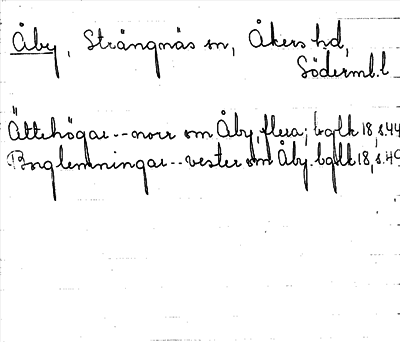 Åby, Strängnäs sn, Åkers hd,
Söderml. l
Ättehögar -- norr om Åby, flera; bglk 18, s. 44
Borglemningar -- vester om Åby. bglk 18, s. 49